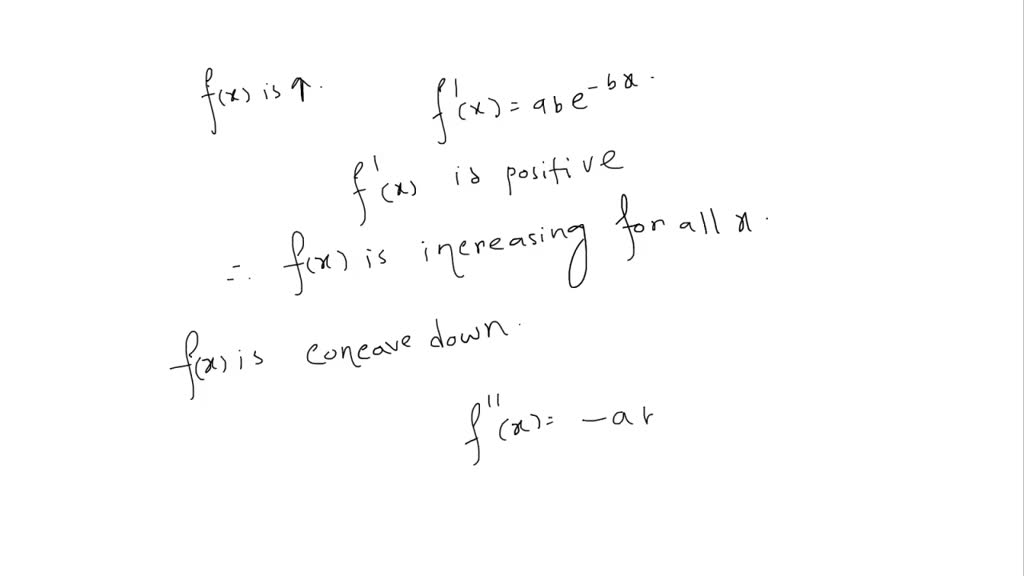 f(x) is ↑.
f'(x) = abe^{-bx}.
f'(x) is positive
∴ f(x) is increasing for all x.
f(x) is concave down.
f''(x) = -a